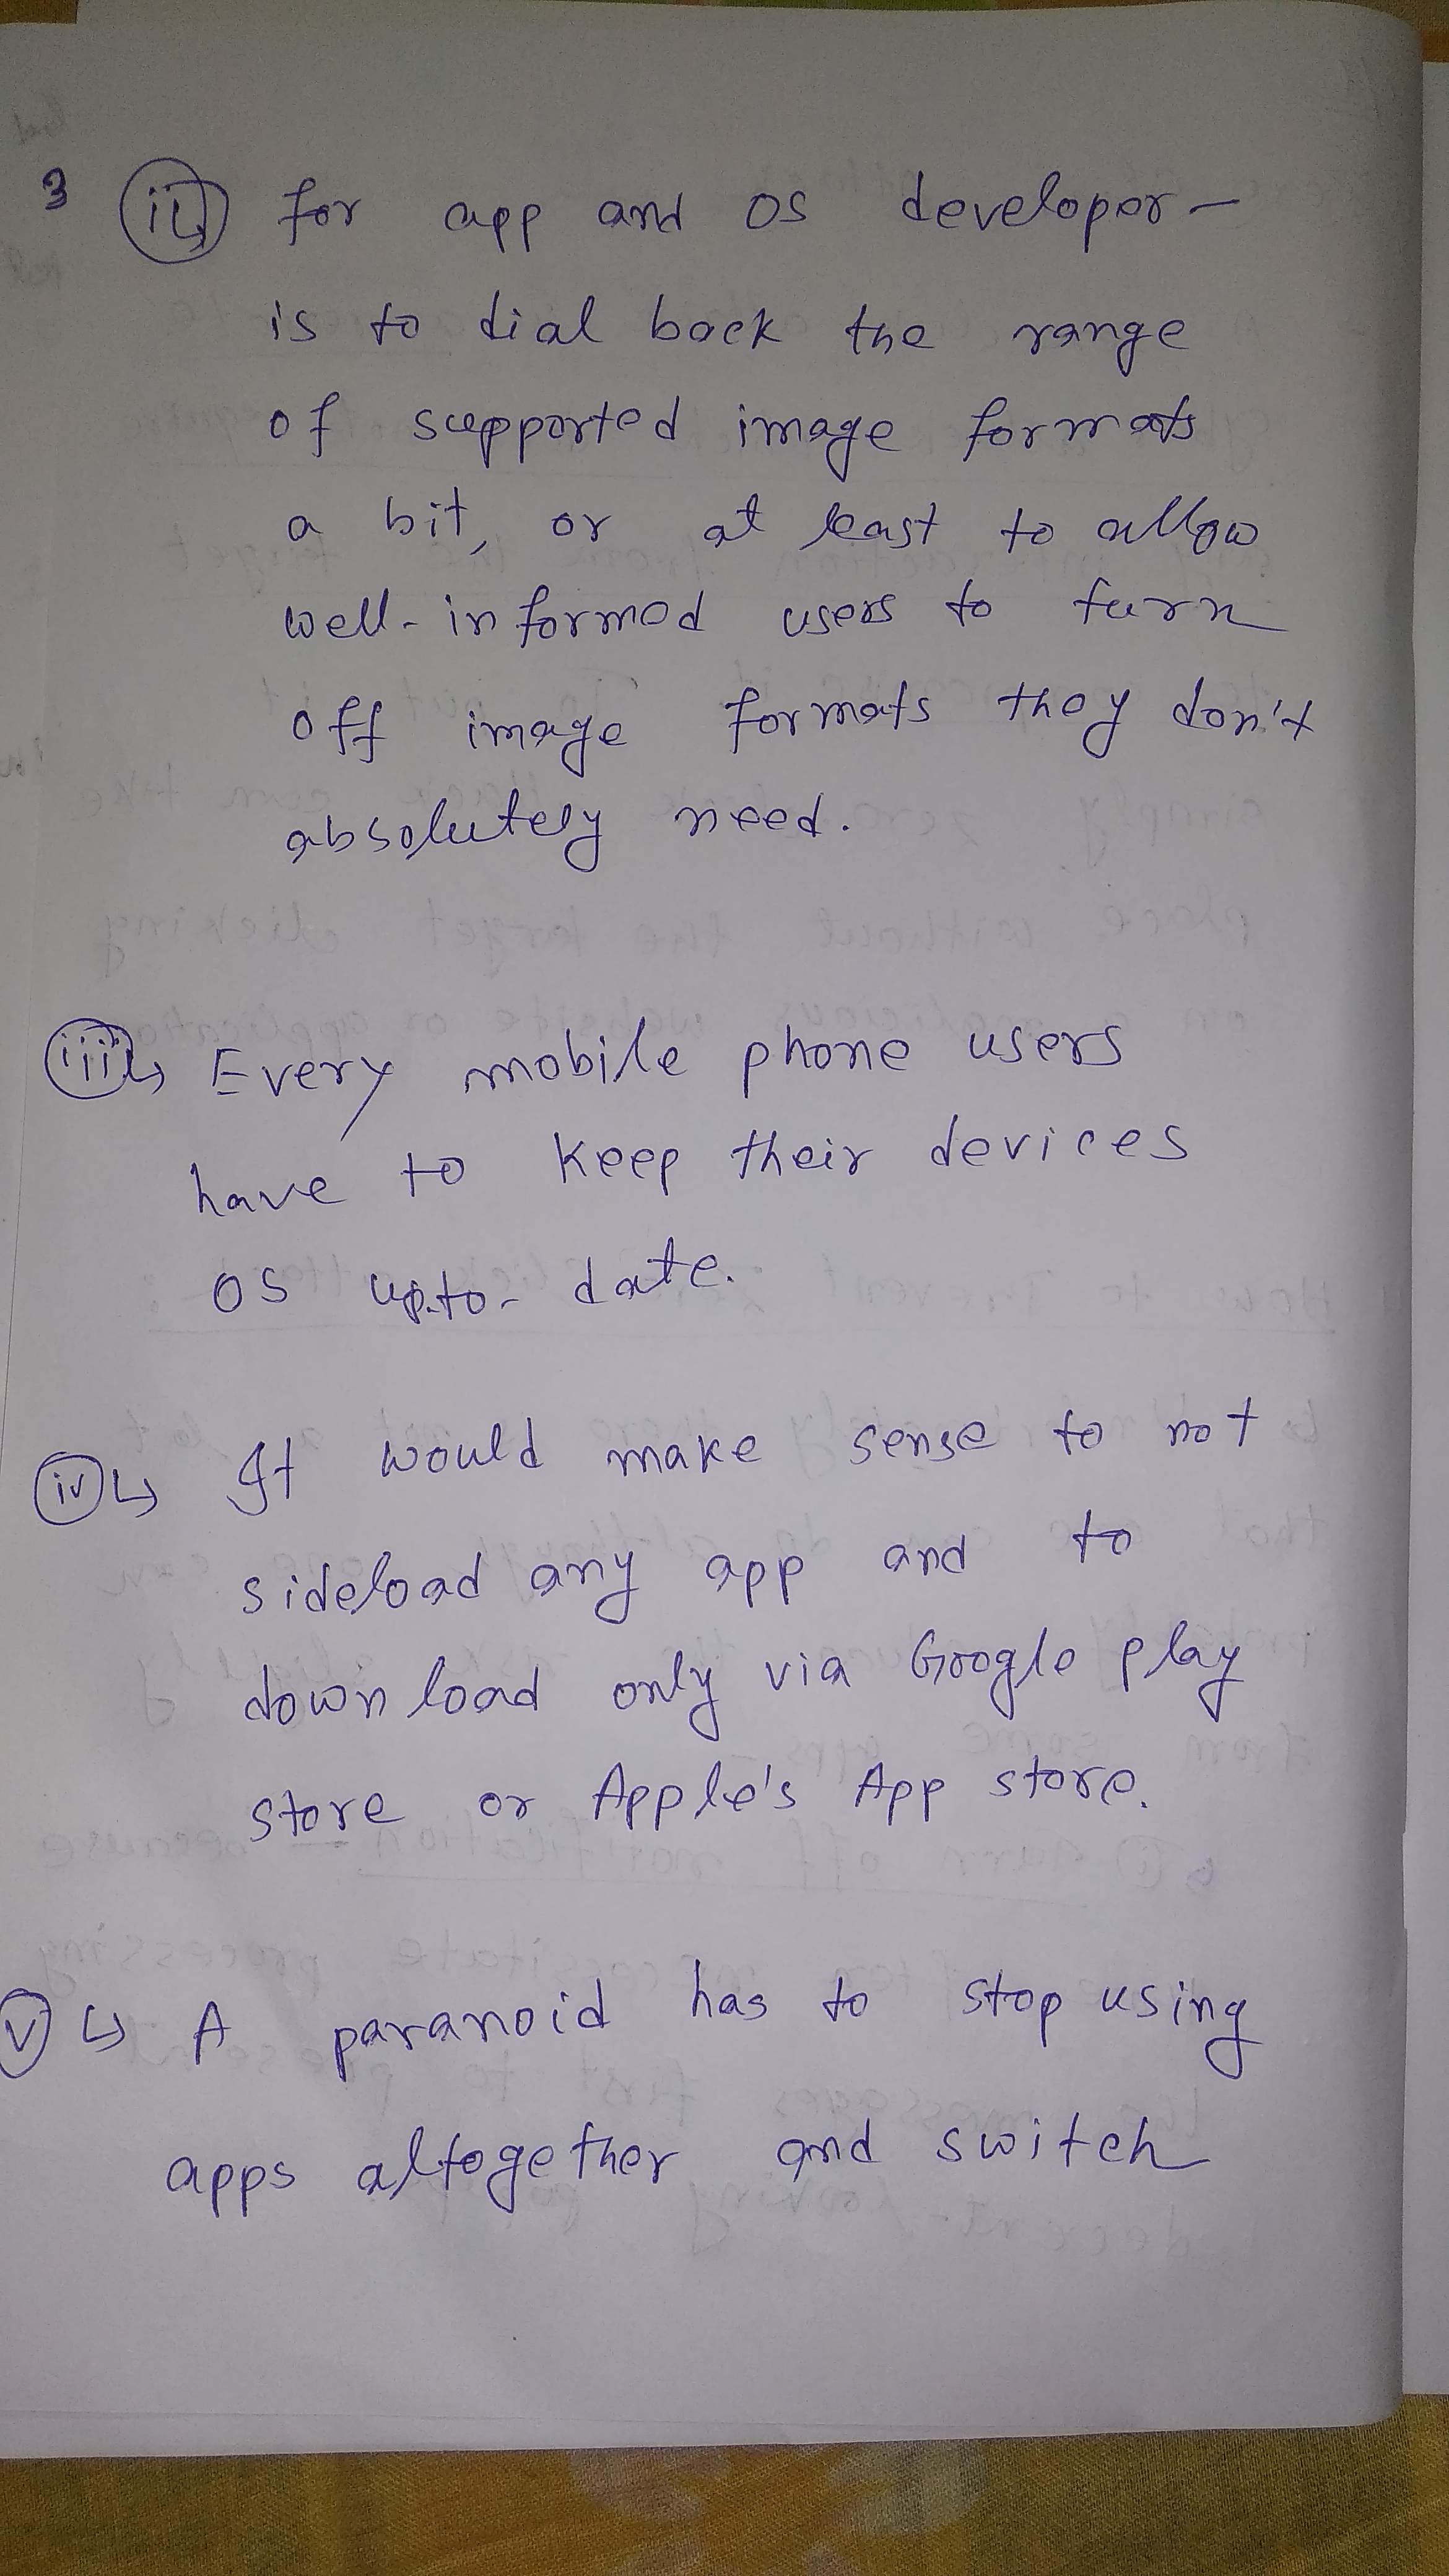 3 (ii) for app and OS developer -
is to dial back the range
of supported image formats
a bit, or at least to allow
well-informed users to turn
off image formats they don't
absolutely need.
(iii) ↳ Every mobile phone users
have to keep their devices
OS up-to-date.
(iv) ↳ It would make sense to not
sideload any app and to
download only via Google play
store or Apple's App store.
(v) ↳ A paranoid has to stop using
apps altogether and switch